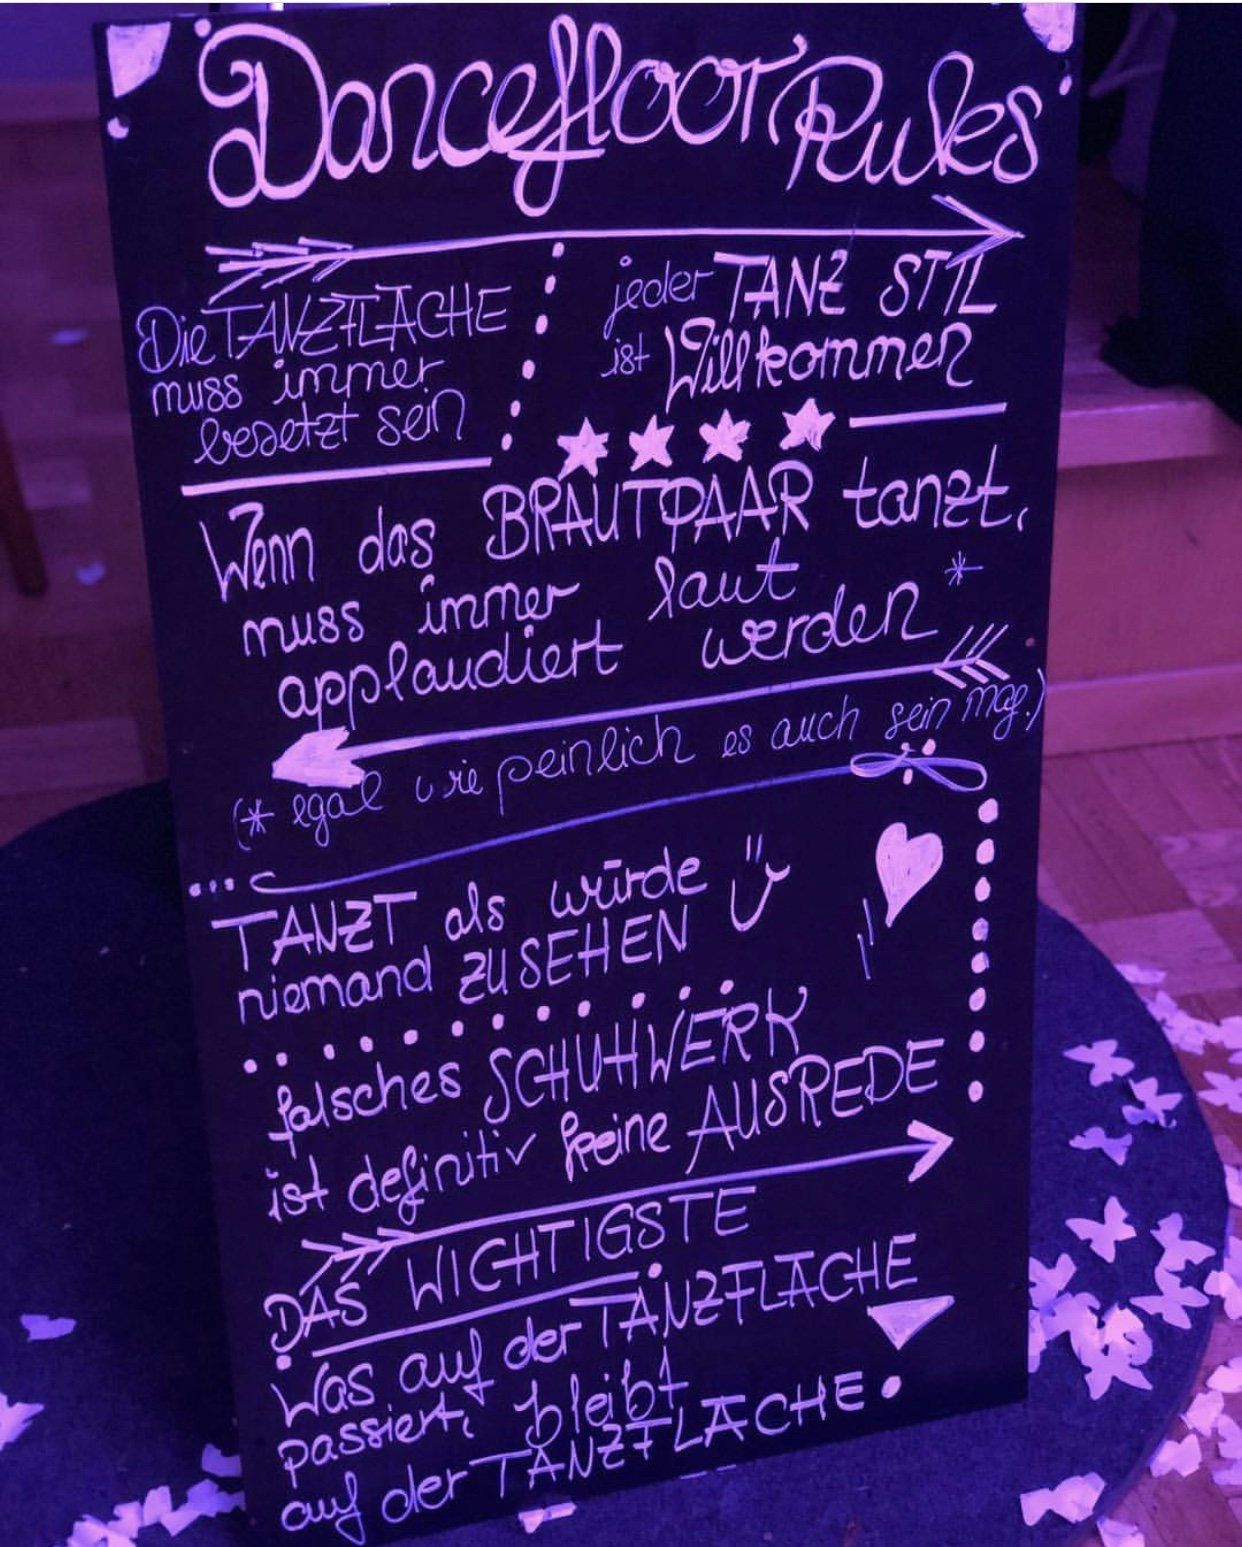 Dancefloor Rules
Die TANZFLÄCHE
muss immer
besetzt sein
jeder TANZ STIL
ist Willkommen
Wenn das BRAUTPAAR tanzt,
muss immer laut
applaudiert werden *
(* egal wie peinlich es auch sein mag.)
TANZT als würde
niemand ZUSEHEN
falsches SCHUHWERK
ist definitiv keine AUSREDE
DAS WICHTIGSTE
Was auf der TANZFLÄCHE
passiert, bleibt
auf der TANZFLÄCHE.